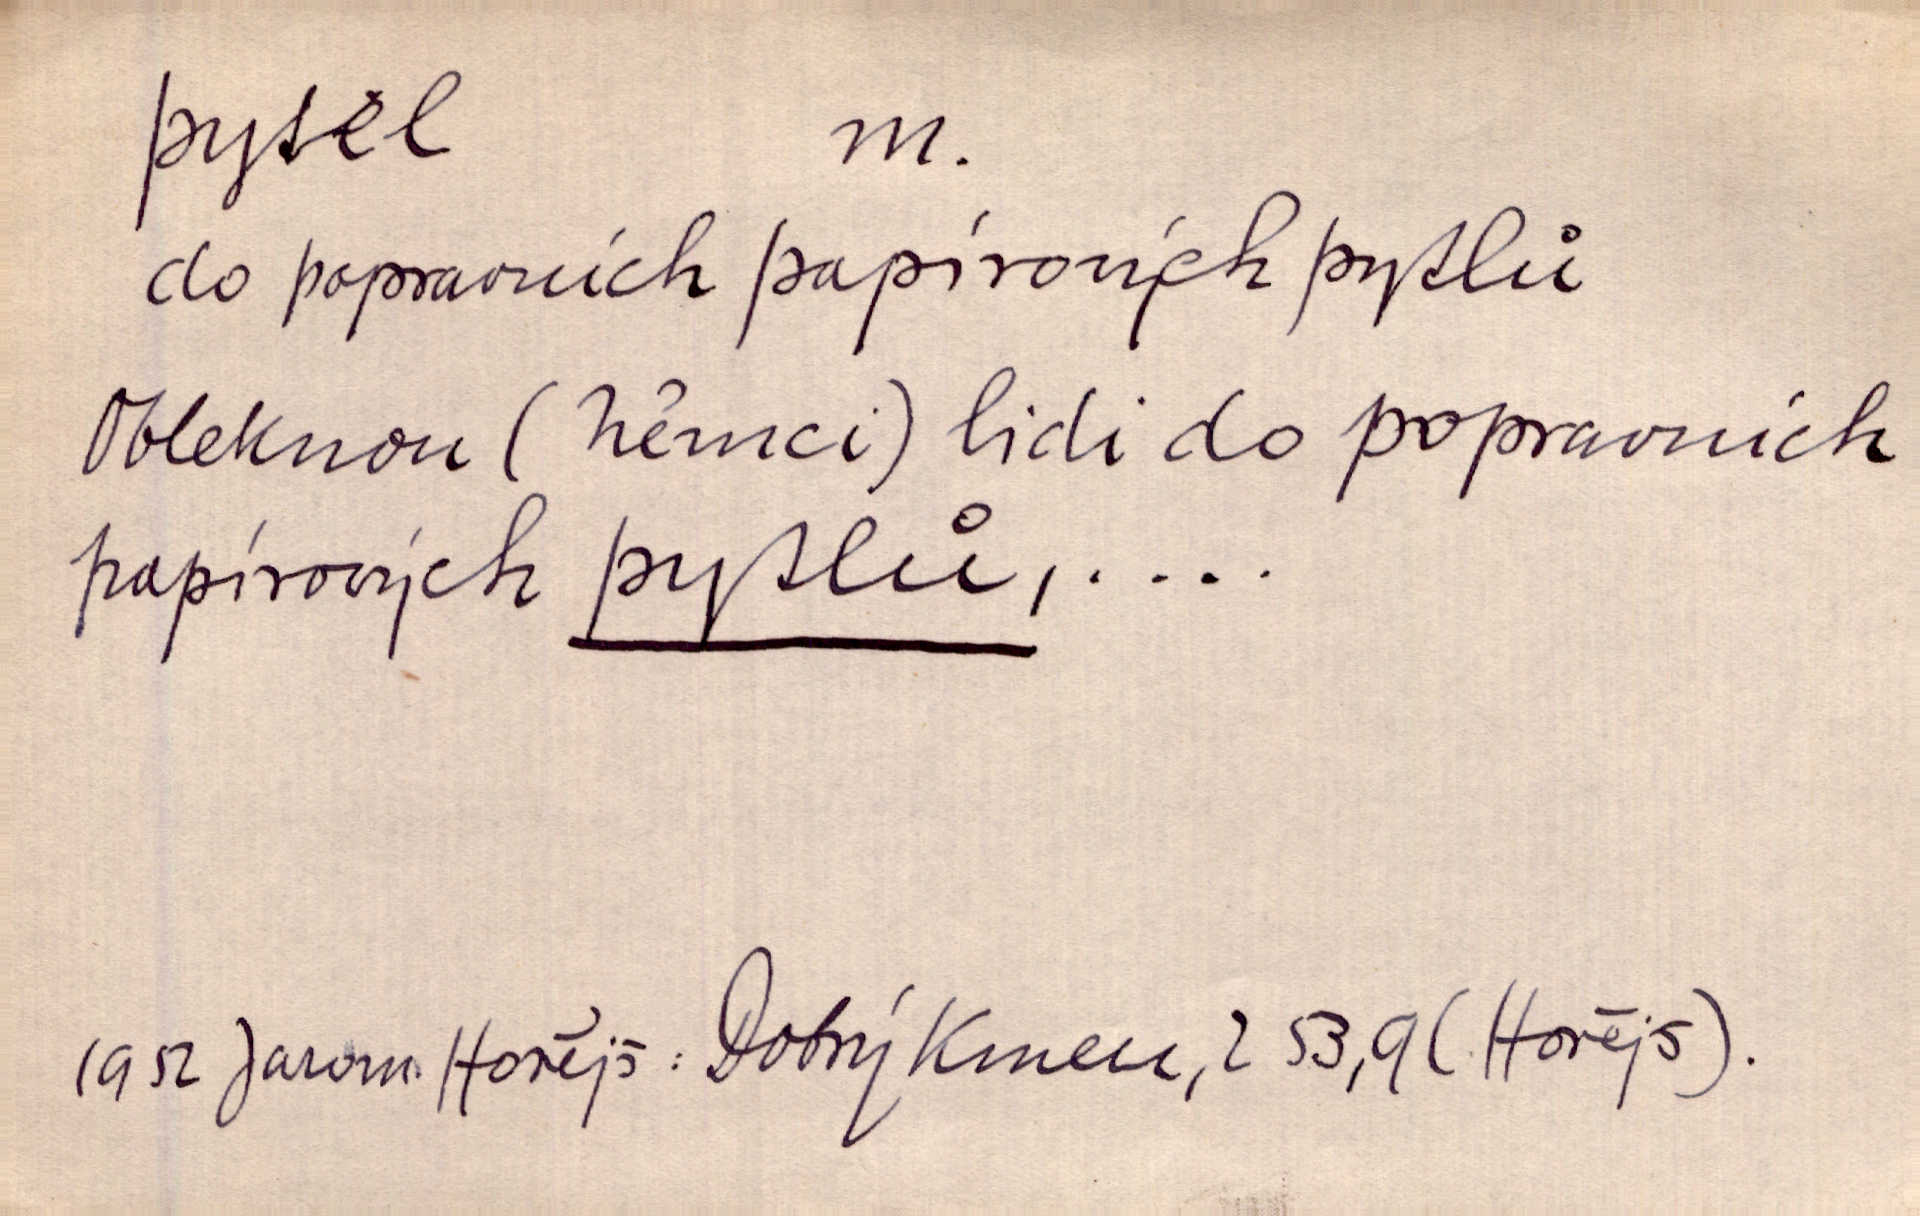 pytel m.
do popravních papírových pytlů
Obleknou (Němci) lidi do popravních
papírových pytlů, . . . .
1952 Jarom. Hořejš: Dobrý kmen, 253,9 (Hořejš).